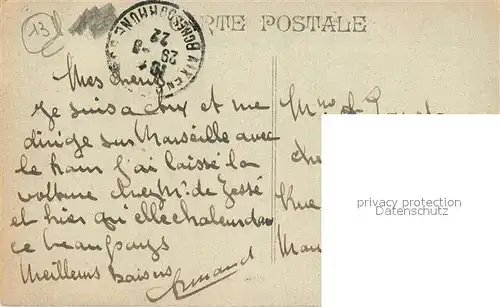 13
CARTE POSTALE
AIX EN
B.DU RHONE
29 -8
22
Mes chéris
Je suis a Aix et me
dirige sur Marseille avec
le train j'ai laissé la
voiture chez Mr. de
et hier qu elle chaleur dans
ce beau pays
Meilleurs baisers
Armand
Mme
che
Rue
privacy protection
Datenschutz